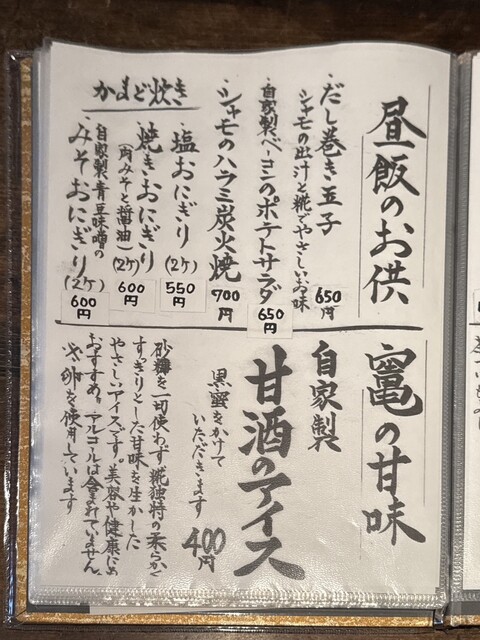 昼飯のお供
・だし巻き玉子
シャモの出汁と糀でやさしいお味
650円
自家製ベーコンのポテトサラダ
650円
・シャモのハラミ炭火焼
900円
かまど炊き
・塩おにぎり(2ケ)
550円
・焼きおにぎり
(肉みそと醤油)(2ケ)
600円
自家製青豆味噌の
・みそおにぎり(2ケ)
600円
竈の甘味
自家製
甘酒のアイス
黒蜜をかけて
いただきます
400円
砂糖を一切使わず、糀独特の柔らかで
すっきりとした甘味を生かした
やさしいアイスです。美容や健康にお
おすすめ。アルコールは含まれていません。
卵を使用しています